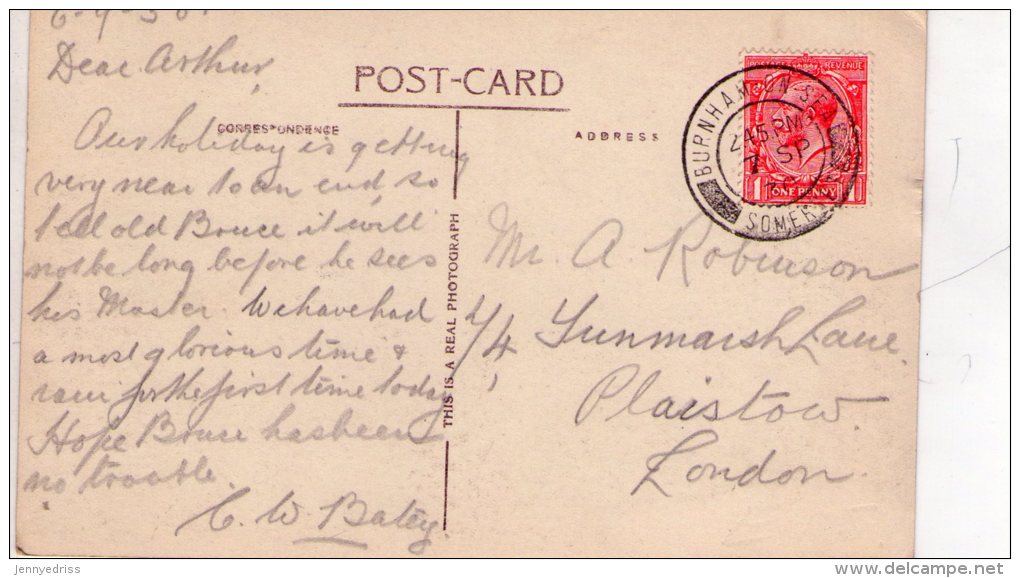 6-9-30.
Dear Arthur,
POST-CARD
CORRESPONDENCE
ADDRESS
Our holiday is getting
very near to an end, so
tell old Bruce it will
not be long before he sees
his Master. We have had
a most glorious time &
rain for the first time today
Hope Bruce has been
no trouble.
C. W. Batey.
THIS IS A REAL PHOTOGRAPH
POSTAGE REVENUE
1 ONE PENNY 1
BURNHAM-ON-SEA
2.45 PM
7 SP
30
SOMERSET
Mr. A. Robinson
Lane,
Plaistow.
London.
jennyedriss
delcampe.net